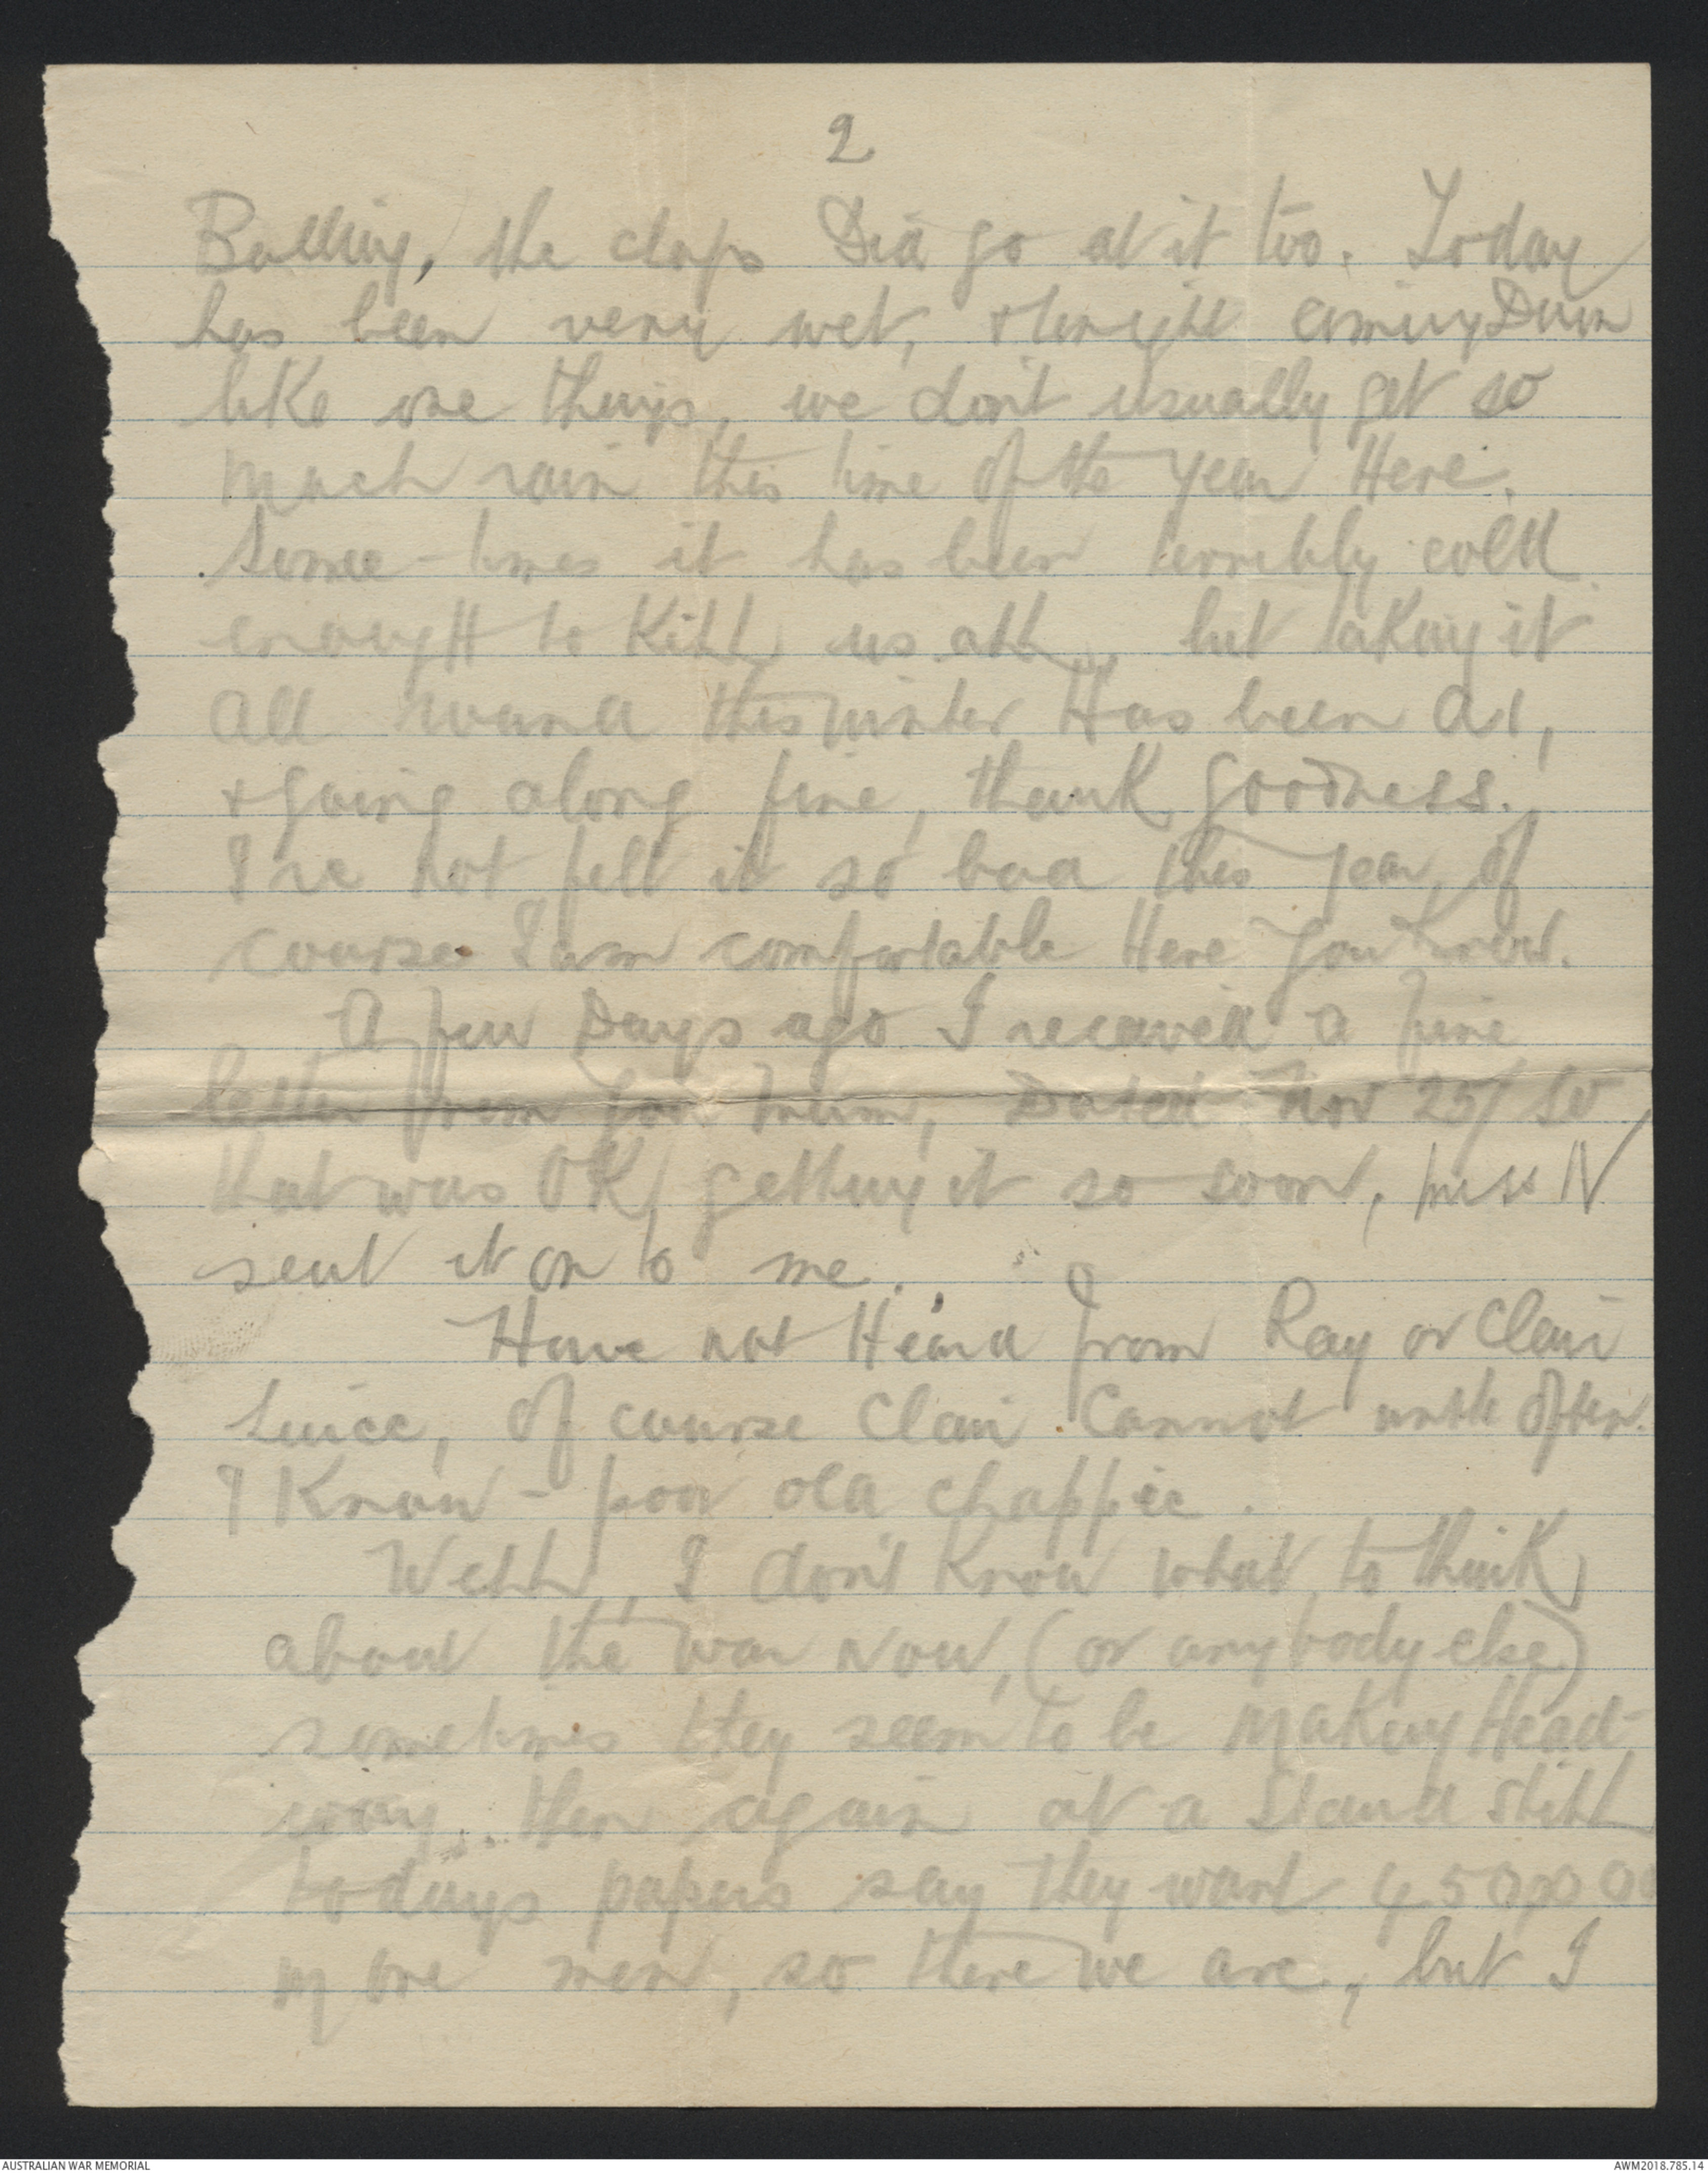 2
the claps Did go at it too. Today
has been very wet, & tonight coming Down
like one things, we don't usually get so
much rain this time of the year Here.
Some-times it has been terribly cold
enough to Kill us all, but taking it
all round this winter Has been A1,
& going along fine, thank goodness.
I've not felt it so bad this year, of
course I am comfortable Here you Know.
A few Days ago I received a fine
letter from you Mum, Dated Nov 25/ so
that was OK getting it so soon, Miss N
sent it on to me.
Have not Heard from Ray or Clair
since, of course Clair Cannot write often
I Know - poor old chappie.
Well, I don't Know what to think
about the war Now, (or anybody else)
sometimes they seem to be Making Head-
way then again at a Stand Still
todays papers say they want 450,000
more men, so there we are, but I
AUSTRALIAN WAR MEMORIAL
AWM2018.785.14